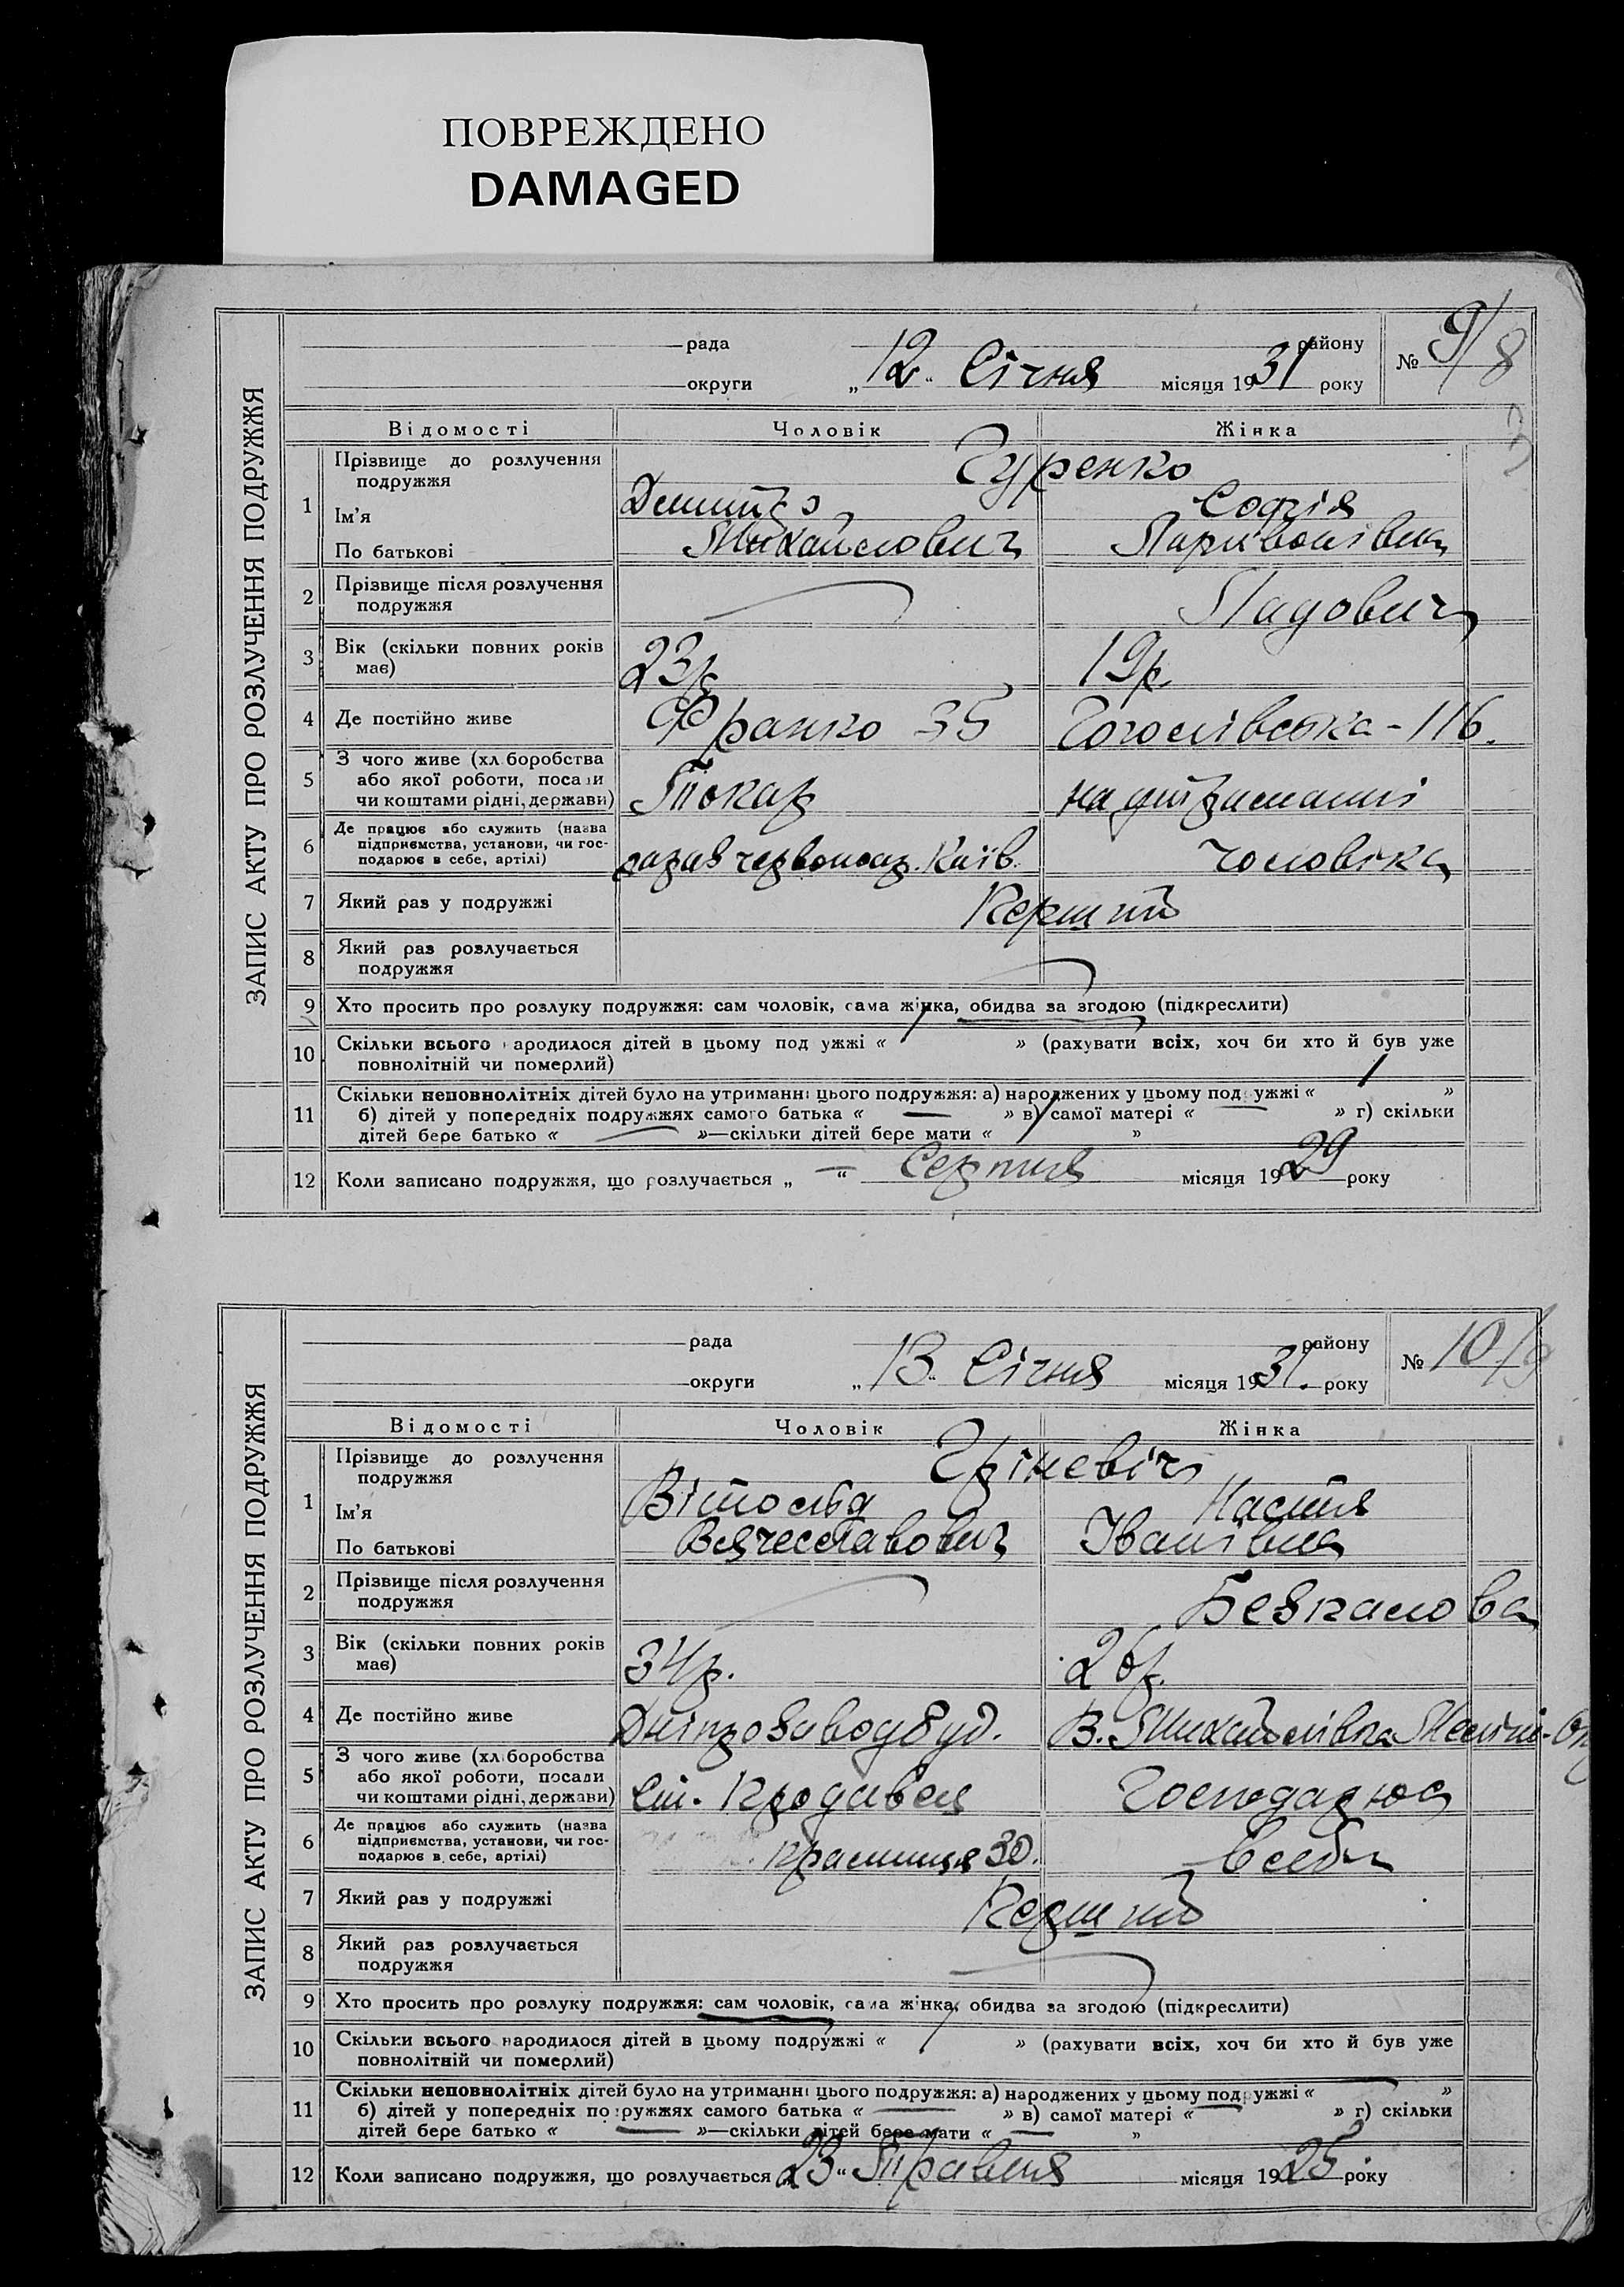 ПОВРЕЖДЕНО
DAMAGED
ЗАПИС АКТУ ПРО РОЗЛУЧЕННЯ ПОДРУЖЖЯ
рада району
округи „12“ Січня місяця 1931 року
№ 9/8
Відомості Чоловік Жінка
1 Прізвище до розлучення подружжя Гуренко
Ім'я Дмитро Софія
По батькові Михайлович
2 Прізвище після розлучення подружжя — Падович
3 Вік (скільки повних років має) 23р. 19р.
4 Де постійно живе Франко 35 Гоголівська - 116.
5 З чого живе (хл боробства або якої роботи, посади чи коштами рідні, держави) Токар на утриманні
6 Де працює або служить (назва підприємства, установи, чи господарює в себе, артілі) Київ. чоловіка
7 Який раз у подружжі Перший
8 Який раз розлучається подружжя —
9 Хто просить про розлуку подружжя: сам чоловік, сама жінка, обидва за згодою (підкреслити)
10 Скільки всього народилося дітей в цьому подружжі « 1 » (рахувати всіх, хоч би хто й був уже
повнолітній чи померлий)
11 Скільки неповнолітніх дітей було на утриманні цього подружжя: а) народжених у цьому подружжі « 1 »
б) дітей у попередніх подружжях самого батька « — » в) самої матері « — » г) скільки
дітей бере батько « — »—скільки дітей бере мати « 1 »
12 Коли записано подружжя, що розлучається „ — “ Серпня місяця 1929 року
ЗАПИС АКТУ ПРО РОЗЛУЧЕННЯ ПОДРУЖЖЯ
рада району
округи „13“ Січня місяця 1931. року
№ 10/9
Відомості Чоловік Жінка
1 Прізвище до розлучення подружжя Гріневіч
Ім'я Вітольд Настя
По батькові Вячеславович Іванівна
2 Прізвище після розлучення подружжя — Безкалова
3 Вік (скільки повних років має) 34р. 26р.
4 Де постійно живе Дніпрозаводбуд. В. Михайлівка
5 З чого живе (хл боробства або якої роботи, посади чи коштами рідні, держави) Ст. Продавец Господарює
6 Де працює або служить (назва підприємства, установи, чи господарює в себе, артілі) крамниця 30. в себе
7 Який раз у подружжі Перший
8 Який раз розлучається подружжя —
9 Хто просить про розлуку подружжя: сам чоловік, сама жінка, обидва за згодою (підкреслити)
10 Скільки всього народилося дітей в цьому подружжі « / » (рахувати всіх, хоч би хто й був уже
повнолітній чи померлий)
11 Скільки неповнолітніх дітей було на утриманні цього подружжя: а) народжених у цьому подружжі « — »
б) дітей у попередніх подружжях самого батька « — » в) самої матері « — » г) скільки
дітей бере батько « — »—скільки дітей бере мати « — »
12 Коли записано подружжя, що розлучається „23“ Травня місяця 1925 року